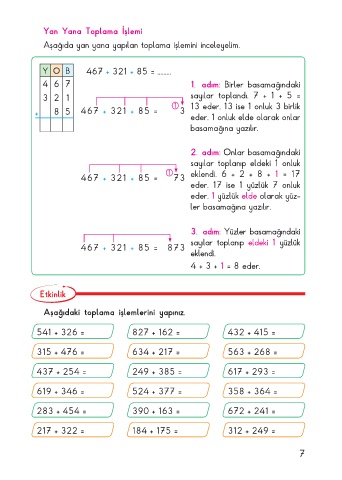 Yan Yana Toplama İşlemi
Aşağıda yan yana yapılan toplama işlemini inceleyelim.
Y O B
4 6 7
3 2 1
+ 8 5
467 + 321 + 85 = ........
467 + 321 + 85 = ① 3
1. adım: Birler basamağındaki
sayılar toplandı. 7 + 1 + 5 =
13 eder. 13 ise 1 onluk 3 birlik
eder. 1 onluk elde olarak onlar
basamağına yazılır.
467 + 321 + 85 = ① 73
2. adım: Onlar basamağındaki
sayılar toplanıp eldeki 1 onluk
eklendi. 6 + 2 + 8 + 1 = 17
eder. 17 ise 1 yüzlük 7 onluk
eder. 1 yüzlük elde olarak yüz-
ler basamağına yazılır.
467 + 321 + 85 = 873
3. adım: Yüzler basamağındaki
sayılar toplanıp eldeki 1 yüzlük
eklendi.
4 + 3 + 1 = 8 eder.
Etkinlik
Aşağıdaki toplama işlemlerini yapınız.
541 + 326 = 827 + 162 = 432 + 415 =
315 + 476 = 634 + 217 = 563 + 268 =
437 + 254 = 249 + 385 = 617 + 293 =
619 + 346 = 524 + 377 = 358 + 364 =
283 + 454 = 390 + 163 = 672 + 241 =
217 + 322 = 184 + 175 = 312 + 249 =
7